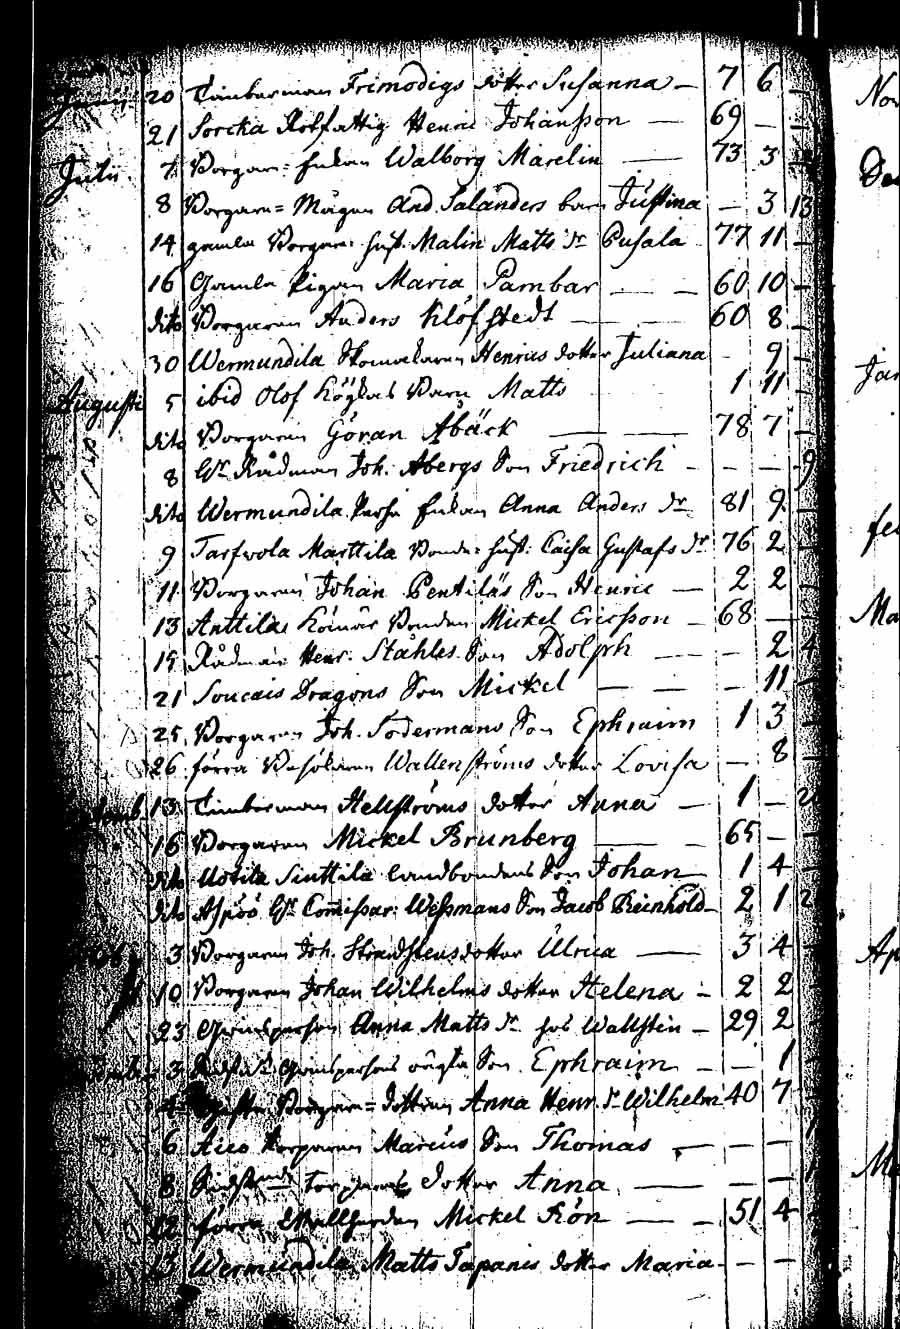 Junii 20 Timberman Frimodigs dotter Susanna — 7 6 —
21 Sorcka Rotfattig Henric Johansson — 69 — —
Julii 7 Borgare: Enkan Walborg Marelin — 73 3
8 Borgare= Mågen And. Salanders barn Justina — 3 13
14 gamla Borgare: hust. Malin Matts dr Pusala 77 11 —
16 Gamla Pigan Maria Pambar — — 60 10 —
dito Borgaren Anders Klöfstedt — — — 60 8 —
30 Wermundila Skomakaren Henrics dotter Juliana — 9 —
Augusti 5 ibid Olof Barn Matts 1 11 —
dito Borgaren Göran Åbäck — — 78 7 —
8 Hr Rådman Joh. Abergs Son Friedrich — — — 9
dito Wermundila Enkan Anna Anders dr 81 9 —
9 Tarfwola Marttila Bonde= hust: Caisa Gustafs dr 76 2 —
11 Borgaren Johan Pentiläs Son Henric — 2 2 —
13 Anttila Bonden Mickel Ericsson — 68 — —
15 Rådman Henr: Ståhles Son Adolph — — — 2 4
21 Soucais Dragons Son Mickel — — — 11 —
25 Borgaren Joh. Södermans Son Ephraim 1 3 —
26 förra Wallenströms dotter Lovisa — 8
13 Timberman Hellströms dotter Anna — 1 —
16 Borgaren Mickel Brunberg — — 65 —
dito Uotila Sinttila landbondens Son Johan 1 4 —
dito Aspöö Hr Commissar: Wessmans Son Jacob Reinhold — 2 1
3 Borgaren Joh. Strandstens dotter Ulrica — 3 4 —
10 Borgaren Johan Wilhelms dotter Helena — 2 2
23 Anna Matts dr hos Wallstin — 29 2
3 oägta Son Ephraim — — 1
4 Borgare= Anna Henr. dr Wilhelm 40 7 —
6 Torparen Marcus Son Thomas — — —
8 Torparens dotter Anna — — —
12 förra Mickel Rön — — 51 4
13 Wermundila Matts Tapanis dotter Maria — — —
Nov
Jan
Ma
Ap